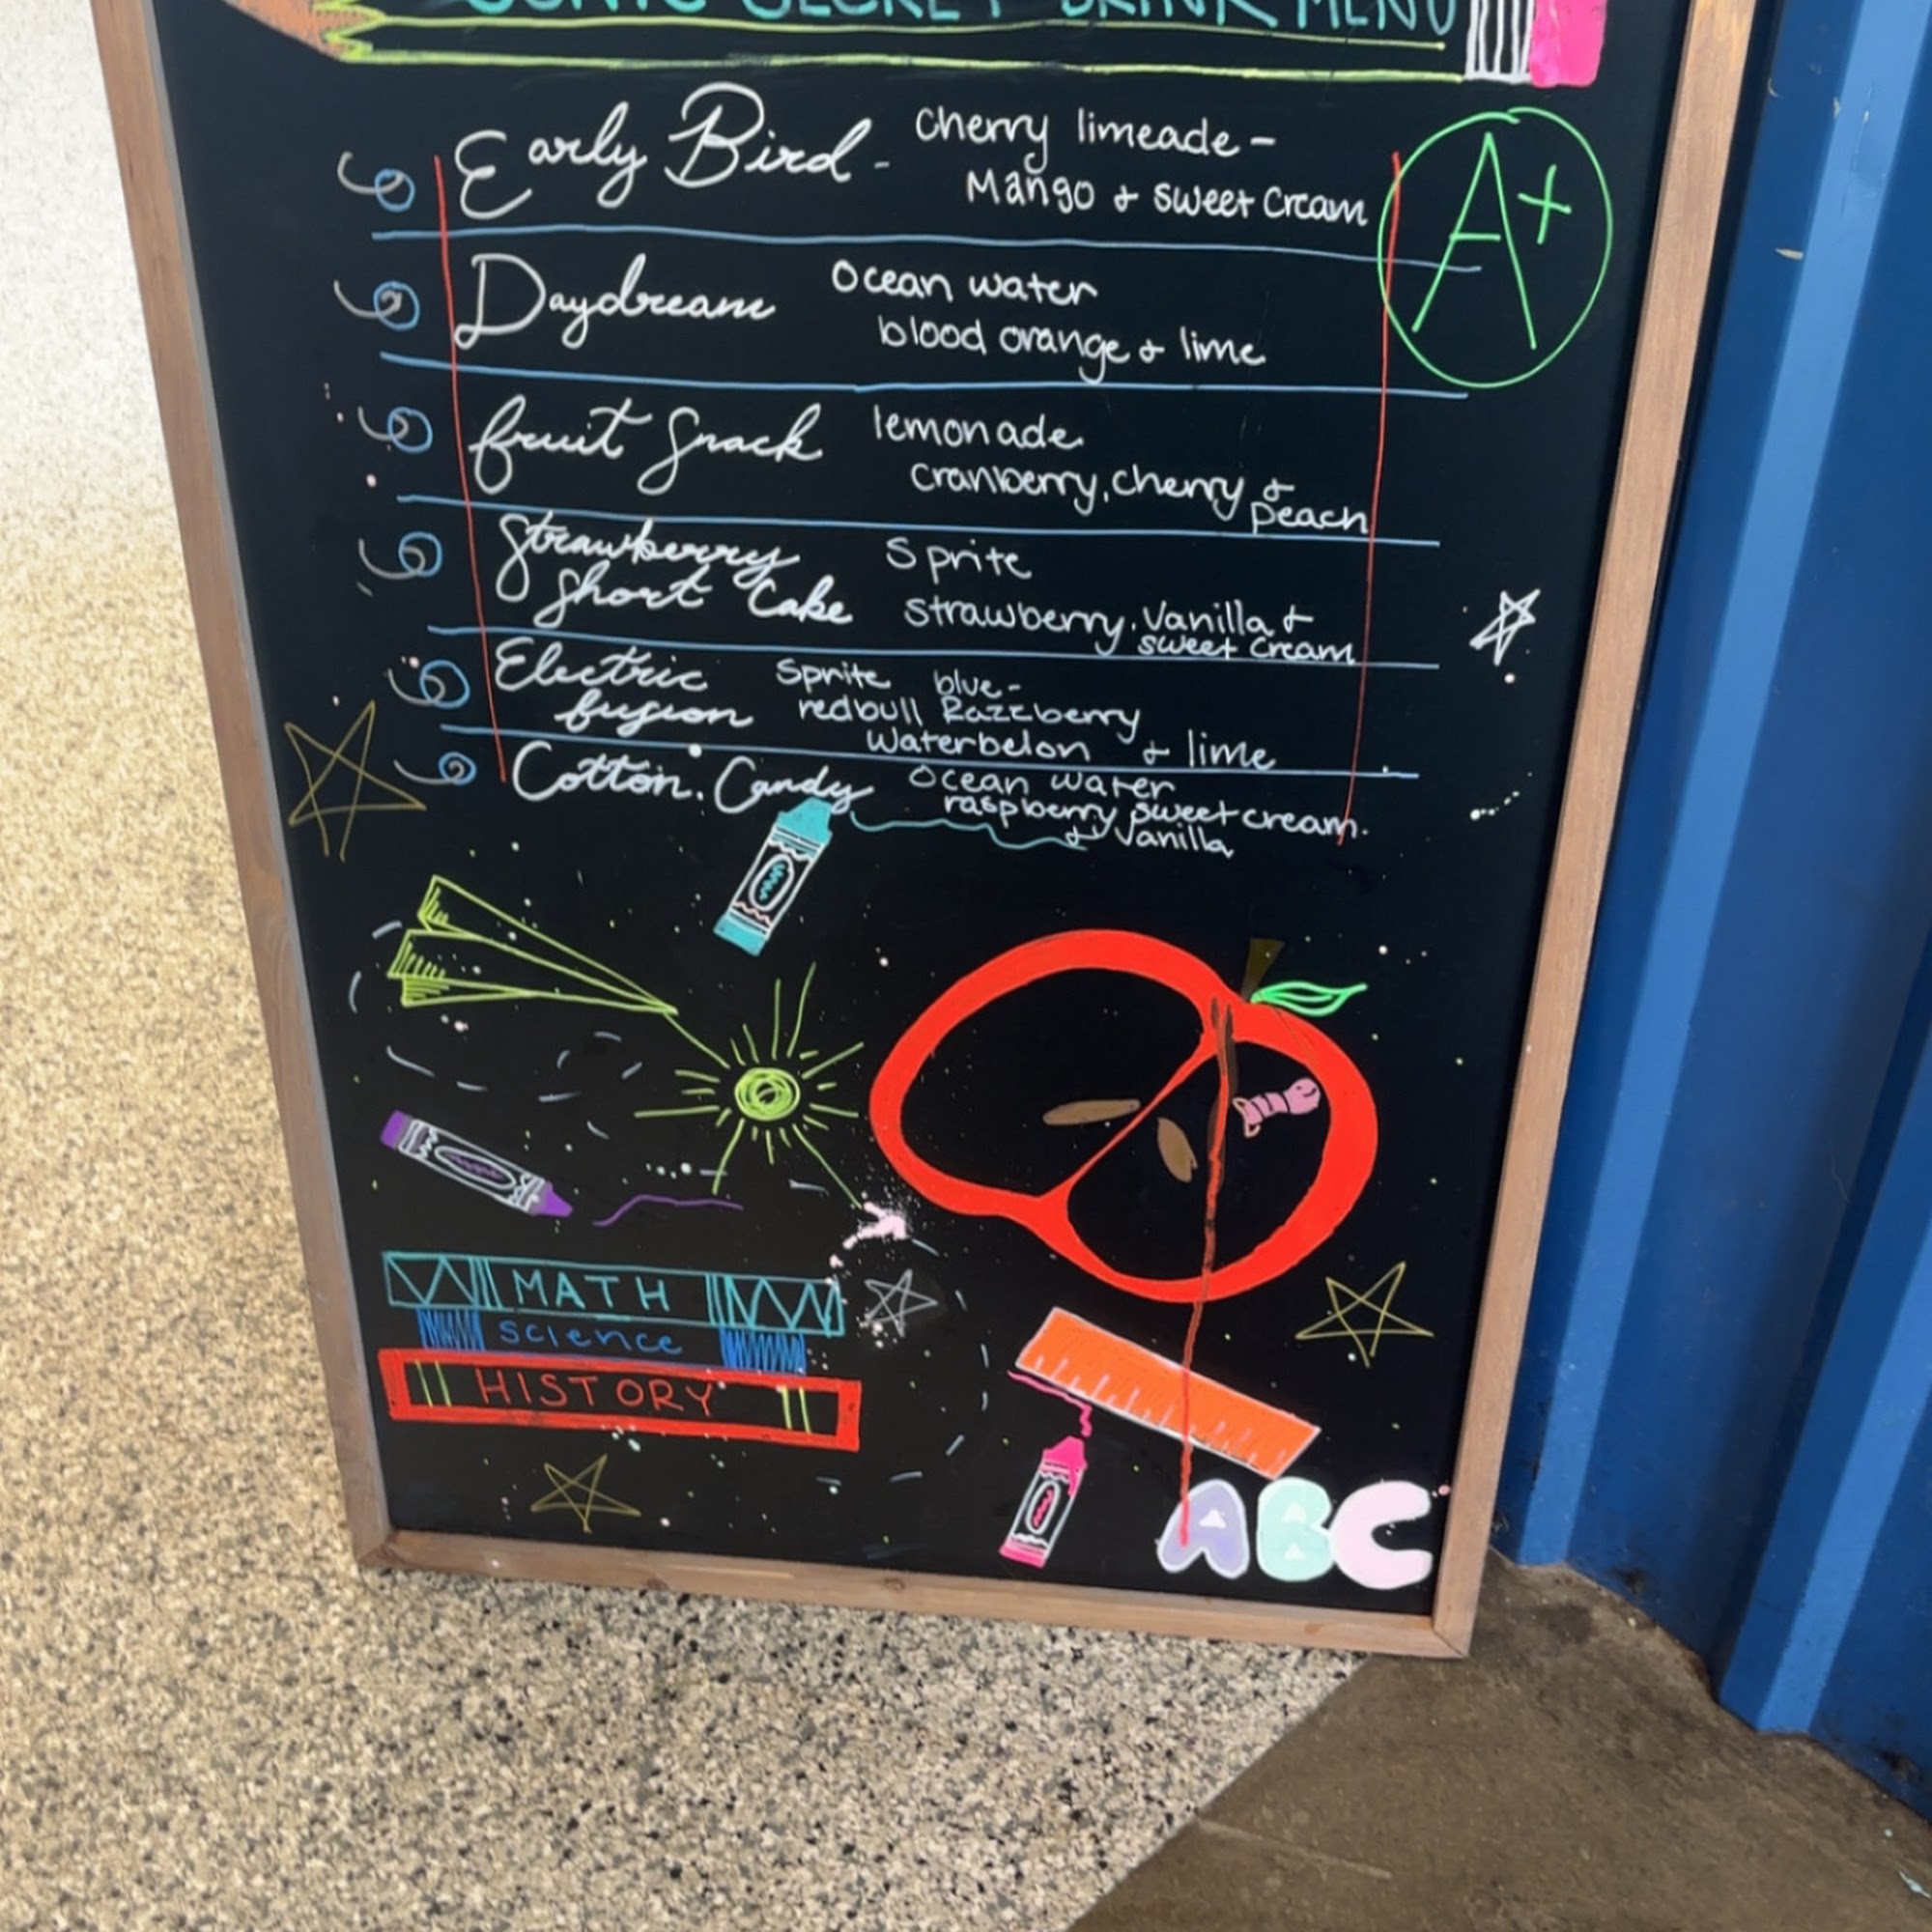 SONIC SECRET DRINK MENU
Early Bird - Cherry limeade -
Mango & sweet Cream
A+
Daydream Ocean water
blood orange & lime
fruit Snack lemonade
Cranberry, cherry &
peach
Strawberry Sprite
Short Cake strawberry, Vanilla &
sweet cream
Electric Sprite blue-
fusion redbull Razzberry
Waterbelon & lime
Cotton Candy Ocean water
raspberry sweet cream
& Vanilla
MATH
science
HISTORY
ABC